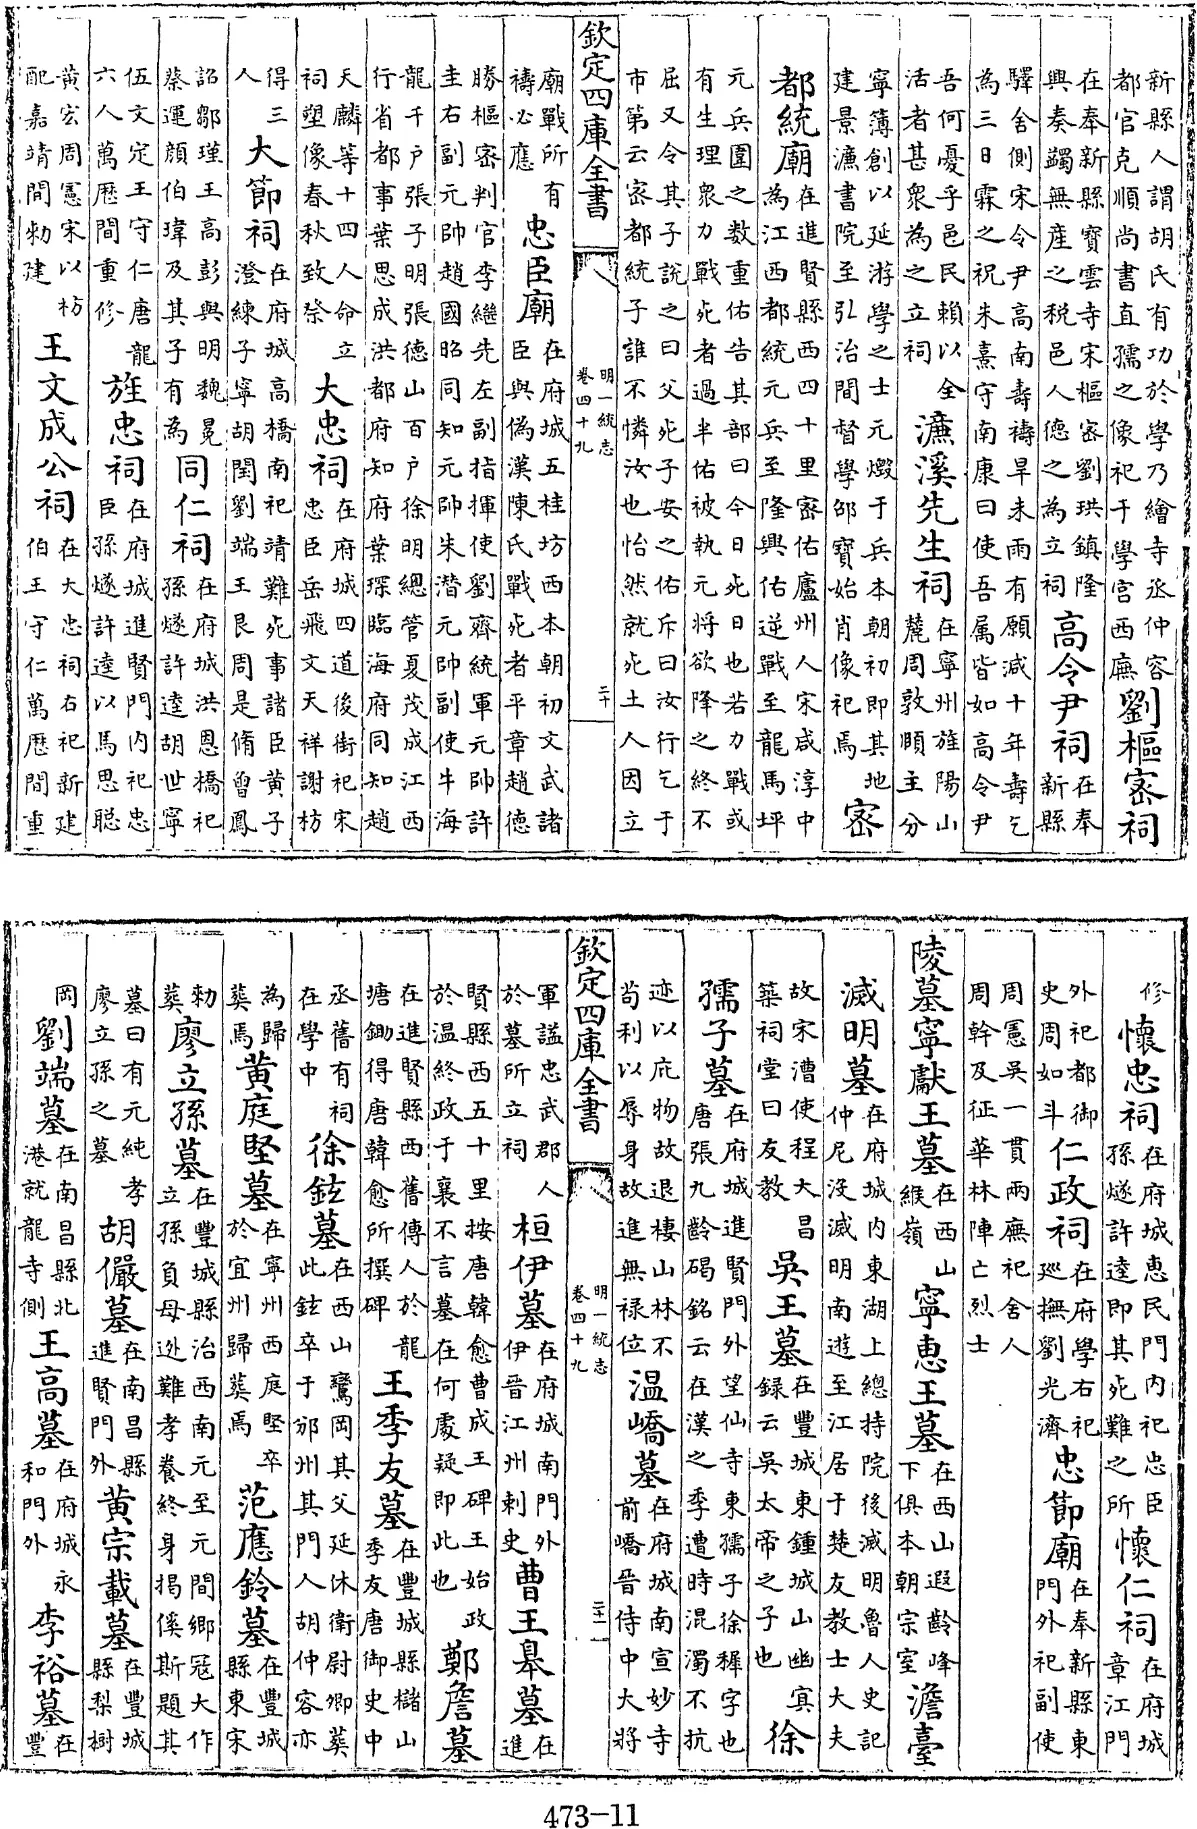 新縣人謂胡氏有功於學乃繪寺丞仲容
都官克順尚書直孺之像祀于學宮西廡
劉樞密祠
在奉新縣寶雲寺宋樞密劉珙鎮隆
興奏蠲無產之稅邑人德之為立祠
高令尹祠
在奉
新縣
驛舍側宋令尹高南壽禱旱未雨有願減十年壽乞
為三日霖之祝朱熹守南康曰使吾属皆如高令尹
吾何憂乎邑民賴以全
活者甚衆為之立祠
濂溪先生祠
在寧州旌陽山
麓周敦頤主分
寧簿創以延游學之士元燬于兵本朝初即其地
建景濂書院至引治間督學邵寶始肖像祀焉
密
都統廟
在進賢縣西四十里密佑廬州人宋咸淳中
為江西都統元兵至隆興佑逆戰至龍馬坪
元兵圍之数重佑告其部曰今日死日也若力戰或
有生理衆力戰死者過半佑被執元将欲降之終不
屈又令其子說之曰父死子安之佑斥曰汝行乞于
市第云密都統子誰不憐汝也怡然就死土人因立
欽定四庫全書
明一統志
卷四十九
二十
廟戰所有
禱必應
忠臣廟
在府城五桂坊西本朝初文武諸
臣與偽漢陳氏戰死者平章趙德
勝樞密判官李繼先左副指揮使劉齊統軍元帥許
圭右副元帥趙國昭同知元帥朱潛元帥副使牛海
龍千户張子明張德山百户徐明總管夏茂成江西
行省都事葉思成洪都府知府葉琛臨海府同知趙
天麟等十四人命立
祠塑像春秋致祭
大忠祠
在府城四道後街祀宋
忠臣岳飛文天祥謝枋
得三
人
大節祠
在府城高橋南祀靖難死事諸臣黄子
澄練子寧胡閏劉端王艮周是脩曾鳳
詔鄒瑾王高彭與明魏冕
蔡運顔伯瑋及其子有為
同仁祠
在府城洪恩橋祀
孫燧許逵胡世寧
伍文定王守仁唐龍
六人萬歷間重修
旌忠祠
在府城進賢門内祀忠
臣孫燧許逵以馬思聰
黄宏周憲宋以枋
配嘉靖間勅建
王文成公祠
在大忠祠右祀新建
伯王守仁萬歷間重
修
懷忠祠
在府城惠民門内祀忠臣
孫燧許逵即其死難之所
懷仁祠
在府城
章江門
外祀都御
史周如斗
仁政祠
在府學右祀
廵撫劉光濟
忠節廟
在奉新縣東
門外祀副使
周憲吳一貫兩廡祀舍人
周幹及征華林陣亡烈士
陵墓寧獻王墓
在西山
緱嶺
寧恵王墓
在西山遐齡峰
下俱本朝宗室
澹臺
滅明墓
在府城内東湖上總持院後滅明魯人史記
仲尼没滅明南遊至江居于楚友教士大夫
故宋漕使程大昌
築祠堂曰友教
吳王墓
在豐城東鍾城山幽㝠
録云吳太帝之子也
徐
孺子墓
在府城進賢門外望仙寺東孺子徐穉字也
唐張九齡碣銘云在漢之季遭時混濁不抗
迹以庇物故退棲山林不
苟利以辱身故進無禄位
温嶠墓
在府城南宣妙寺
前嶠晉侍中大将
欽定四庫全書
明一統志
卷四十九
二十一
軍謚忠武郡人
於墓所立祠
桓伊墓
在府城南門外
伊晉江州刺史
曹王臯墓
在
進
賢縣西五十里按唐韓愈曹成王碑王始政
於温終政于襄不言墓在何處疑即此也
鄭詹墓
在進賢縣西舊傳人於龍
塘鋤得唐韓愈所撰碑
王季友墓
在豐城縣櫧山
季友唐御史中
丞舊有祠
在學中
徐鉉墓
在西山鸞岡其父延休衛尉卿葬
此鉉卒于邠州其門人胡仲容亦
為歸
葬焉
黄庭堅墓
在寧州西庭堅卒
於宜州歸葬焉
范應鈴墓
在豐城
縣東宋
勅
葬
廖立孫墓
在豐城縣治西南元至元間鄉冦大作
立孫負母逊難孝養終身掲傒斯題其
墓曰有元純孝
廖立孫之墓
胡儼墓
在南昌縣
進賢門外
黄宗載墓
在豐城
縣梨樹
岡
劉端墓
在南昌縣北
港就龍寺側
王高墓
在府城永
和門外
李裕墓
在
豐
473-11